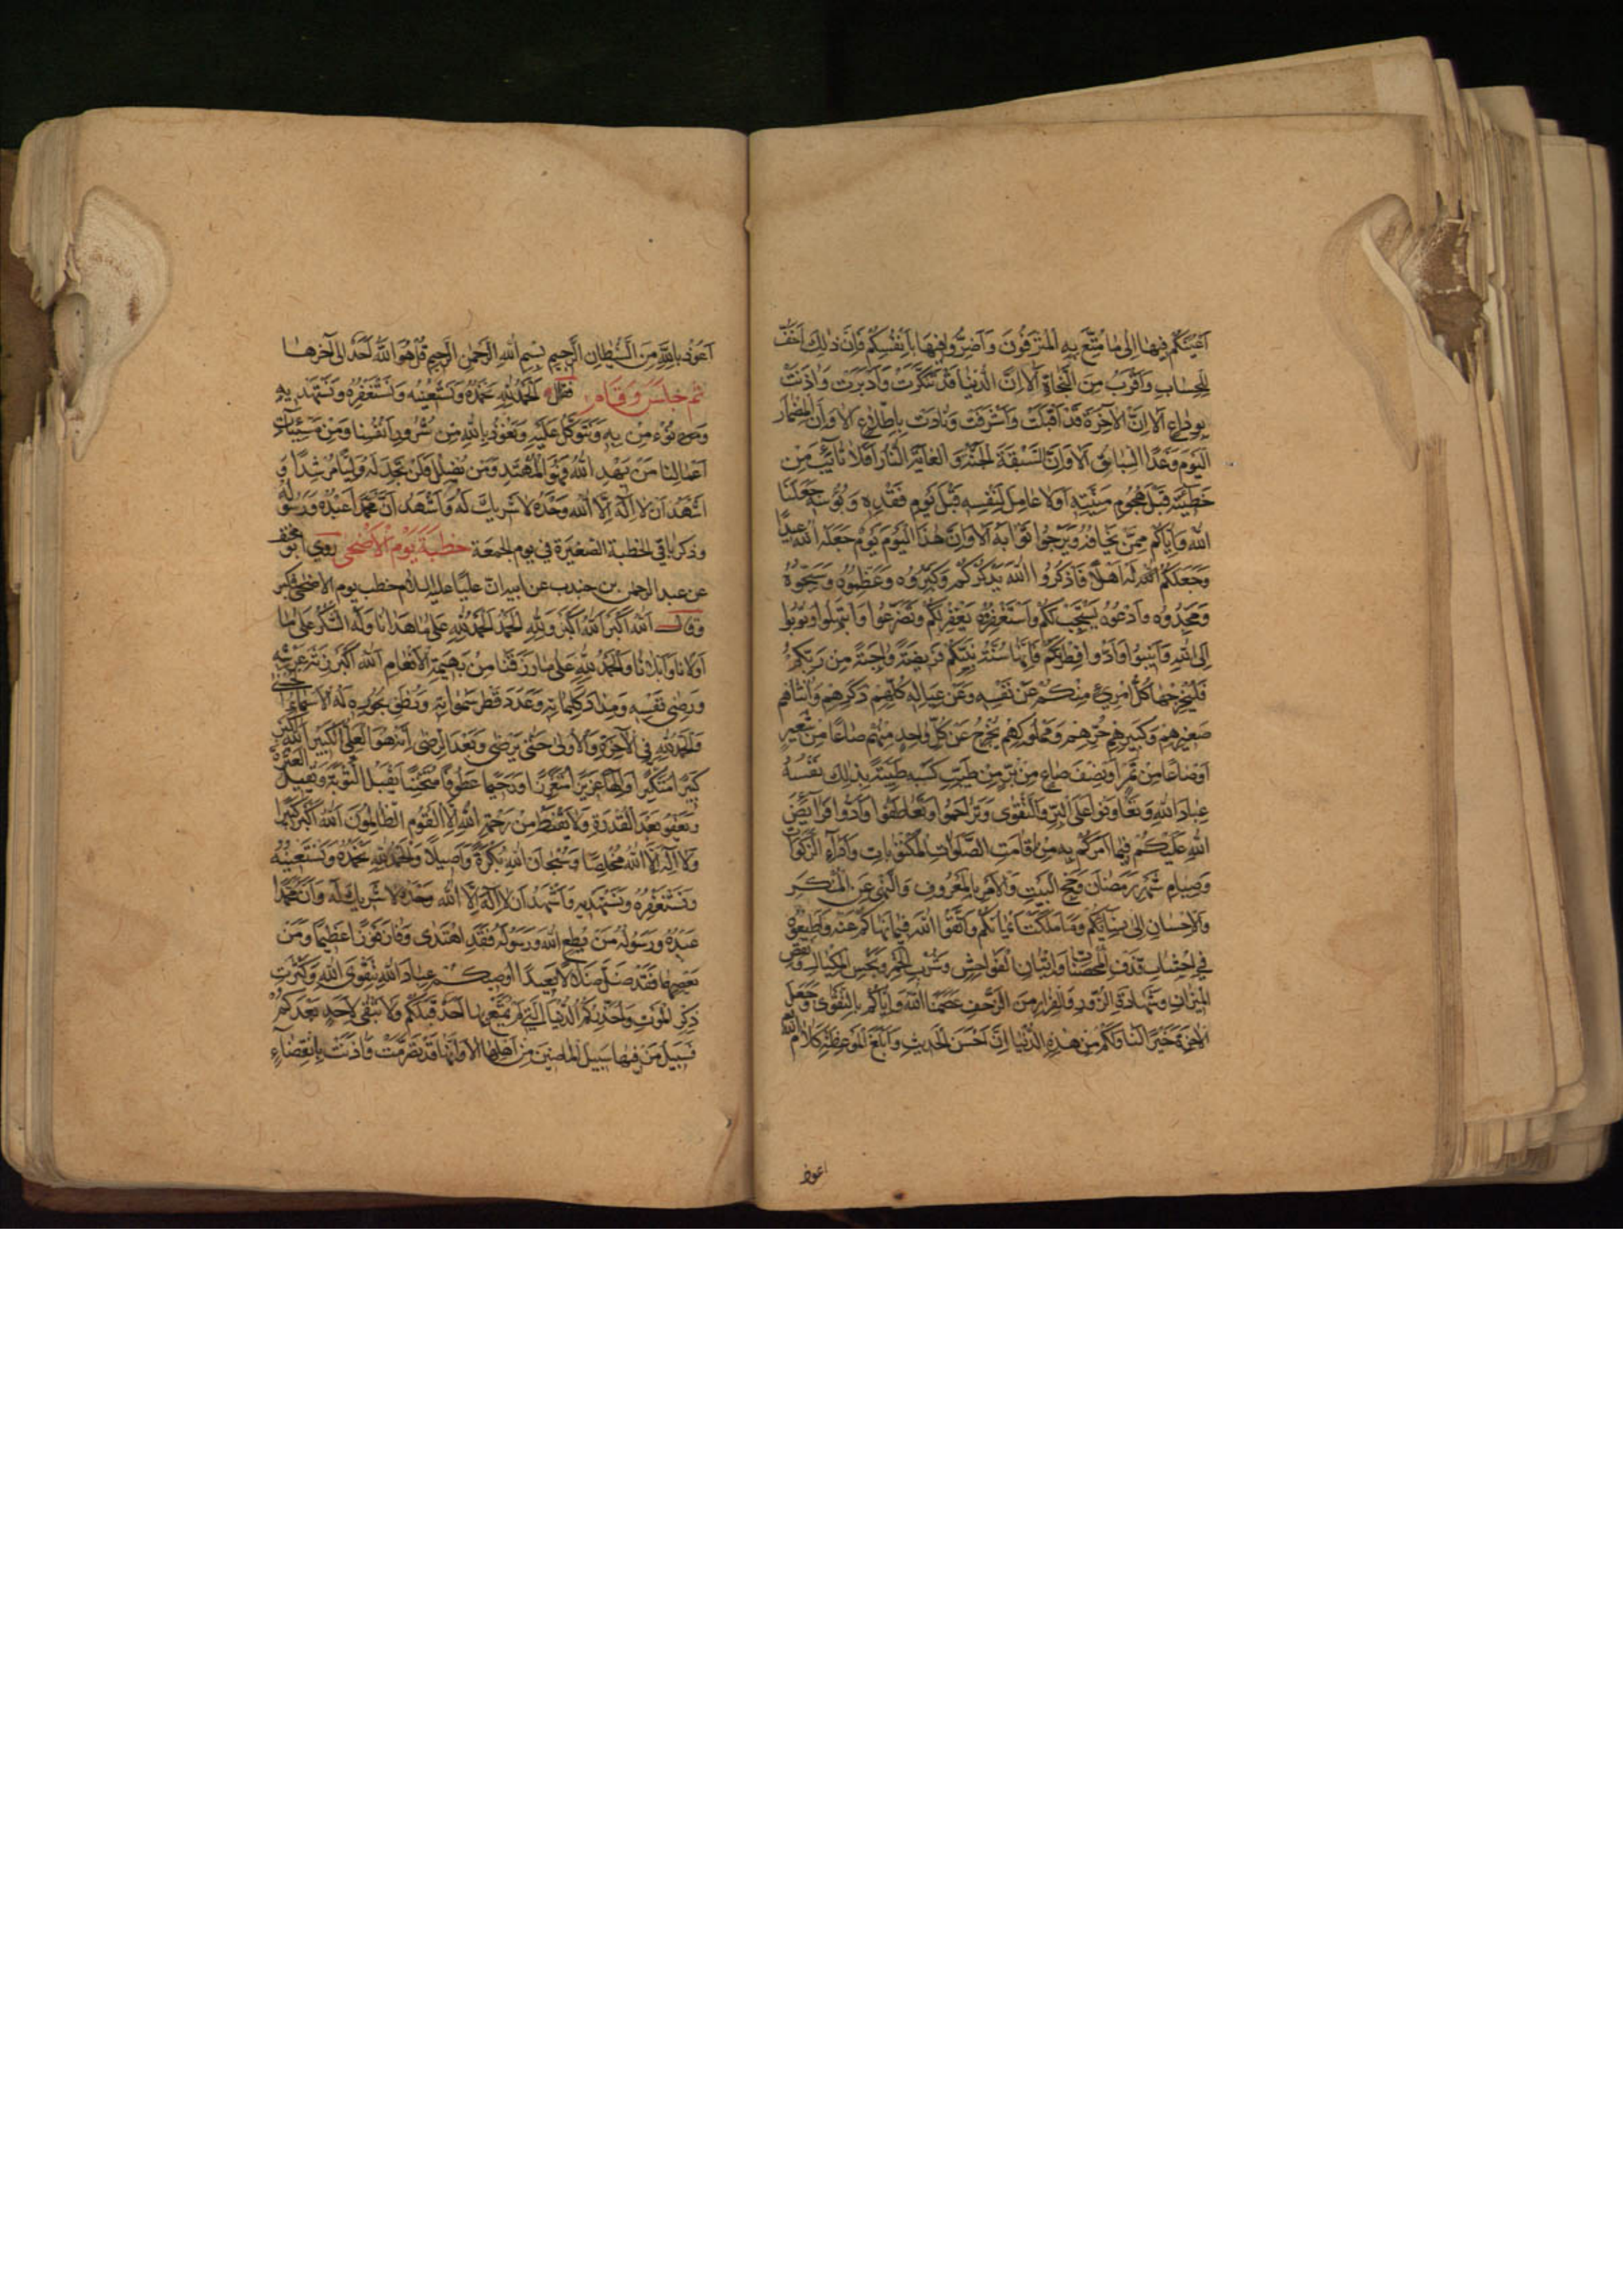 اَعْيُنَكُمْ فيها اِلى ما مُتِّعَ بِهِ الْمُتْرَفُونَ وَاَضِرُّوا فِيهَا بِاَنْفُسِكُمْ فَاِنَّ ذلِكَ اَخَفُّ
لِلْحِسابِ وَاَقْرَبُ مِنَ النَّجاةِ اَلا اِنَّ الدُّنْيا قَدْ تَنَكَّرَتْ وَاَدْبَرَتْ وَاذَنَتْ
بِوِداعٍ اَلا اِنَّ الْآخِرَةَ قَدْ اَقْبَلَتْ وَاَشْرَفَتْ وَنادَتْ بِاِطِّلاعٍ اَلا وَاِنَّ الْمِضْمارَ
الْيَوْمَ وَغَدًا السِّباقُ اَلا وَاِنَّ السَّبْقَةَ الْجَنَّةُ وَ الْغايَةَ النّارُ اَفَلا تائِبٌ مِنْ
خَطيئَتِهِ قَبْلَ هُجُومِ مَنِيَّتِهِ اَوَلا عامِلٌ لِنَفْسِهِ قَبْلَ يَوْمِ فَقْرِهِ وَ بُؤْسِهِ جَعَلَنَا
اللهُ وَاِيّاكُمْ مِمَّنْ يَخافُهُ وَيَرْجُوا ثَوابَهُ اَلا وَاِنَّ هذَا الْيَوْمَ يَوْمٌ جَعَلَهُ اللهُ عيدًا
وَجَعَلَكُمْ اللهُ لَهُ اَهْلًا فَاذْكُرُوا اللهَ يَذْكُرْكُمْ وَكَبِّرُوهُ وَعَظِّمُوهُ وَسَبِّحُوهُ
وَمَجِّدُوهُ وَادْعُوهُ يَسْتَجِبْ لَكُمْ وَاسْتَغْفِرُوهُ يَغْفِرْ لَكُمْ وَتَضَرَّعُوا وَابْتَهِلُوا وَتُوبُوا
اِلَى اللهِ وَاَنيبُوا وَاَدُّوا فِطْرَتَكُمْ فَاِنَّها سُنَّةُ نَبِيِّكُمْ فَريضَةٌ واجِبَةٌ مِنْ رَبِّكُمْ
فَلْيُخْرِجْها كُلُّ امْرِئٍ مِنْكُمْ عَنْ نَفْسِهِ وَعَنْ عِيالِهِ كُلِّهِمْ ذَكَرِهِمْ وَاُنْثاهُمْ
صَغيرِهِمْ وَكَبيرِهِمْ حُرِّهِمْ وَمَمْلُوكِهِمْ يُخْرِجُ عَنْ كُلِّ واحِدٍ مِنْهُمْ صاعًا مِنْ شَعيرٍ
اَوْ صاعًا مِنْ تَمْرٍ اَوْ نِصْفَ صاعٍ مِنْ بُرٍّ مِنْ طَيِّبِ كَسْبِهِ طَيِّبَةً بِذلِكَ نَفْسُهُ
عِبادَ اللهِ وَتَعاوَنُوا عَلَى الْبِرِّ وَالتَّقْوى وَتَراحَمُوا وَتَعاطَفُوا وَاَدُّوا فَرائِضَ
اللهِ عَلَيْكُمْ فيما اَمَرَكُمْ بِهِ مِنْ اِقامَتِ الصَّلَواتِ الْمَكْتُوباتِ وَاَداءِ الزَّكَواتِ
وَصِيامِ شَهْرِ رَمَضانَ وَحَجِّ الْبَيْتِ وَالْاَمْرِ بِالْمَعْرُوفِ وَالنَّهْيِ عَنِ الْمُنْكَرِ
وَالْاِحْسانِ اِلى نِسائِكُمْ وَما مَلَكَتْ اَيْمانُكُمْ وَاتَّقُوا اللهَ فيما نَهاكُمْ عَنْهُ وَاَطيعُوهُ
فِي اجْتِنابِ قَذْفِ الْمُحْصَناتِ وَاِتْيانِ الْفَواحِشِ وَشُرْبِ الْخَمْرِ وَبَخْسِ الْمِكْيالِ وَنَقْصِ
الْميزانِ وَشَهادَةِ الزُّورِ وَالْفِرارِ مِنَ الزَّحْفِ عَصَمَنَا اللهُ وَاِيّاكُمْ بِالتَّقْوى وَجَعَلَ
الْآخِرَةَ خَيْرًا لَنا وَلَكُمْ مِنْ هذِهِ الدُّنْيا اِنَّ اَحْسَنَ الْحَديثِ وَاَبْلَغَ الْمَوْعِظَةِ كَلامُ اللهِ
اعوذ
اَعُوذُ بِاللهِ مِنَ الشَّيْطانِ الرَّجيمِ بِسْمِ اللهِ الرَّحْمنِ الرَّحيمِ قُلْ هُوَ اللهُ اَحَدٌ الى آخرها
ثم جلس وقام فقال اَلْحَمْدُ لِلّهِ نَحْمَدُهُ وَنَسْتَعينُهُ وَنَسْتَغْفِرُهُ وَنَسْتَهْديهِ
وَنُؤْمِنُ بِهِ وَنَتَوَكَّلُ عَلَيْهِ وَنَعُوذُ بِاللهِ مِنْ شُرُورِ اَنْفُسِنا وَمِنْ سَيِّئاتِ
اَعْمالِنا مَنْ يَهْدِ اللهُ فَهُوَ الْمُهْتَدِ وَمَنْ يُضْلِلْ فَلَنْ تَجِدَ لَهُ وَلِيًّا مُرْشِدًا وَ
اَشْهَدُ اَنْ لا اِلهَ اِلَّا اللهُ وَحْدَهُ لا شَريكَ لَهُ وَاَشْهَدُ اَنَّ مُحَمَّدًا عَبْدُهُ وَرَسُولُهُ
وذكر باقي الخطبة الصغيرة في يوم الجمعة خطبة يوم الأضحى روى ابو مخنف
عن عبد الرحمن بن جندب عن ابيه ان عليا عليه السلام خطب يوم الاضحى فكبر
وقال اَللهُ اَكْبَرُ اَللهُ اَكْبَرُ وَلِلّهِ الْحَمْدُ اَلْحَمْدُ لِلّهِ عَلى ما هَدانا وَلَهُ الشُّكْرُ عَلى ما
اَوْلانا وَاَبْلانا وَالْحَمْدُ لِلّهِ عَلى ما رَزَقَنا مِنْ بَهيمَةِ الْاَنْعامِ اَللهُ اَكْبَرُ زِنَةَ عَرْشِهِ
وَرِضى نَفْسِهِ وَمِدادَ كَلِماتِهِ وَعَدَدَ قَطْرِ سَمواتِهِ وَنُطَفِ بُحُورِهِ لَهُ الْاَسْماءُ الْحُسْنى
وَالْحَمْدُ لِلّهِ فِي الْآخِرَةِ وَالْاُولى حَتّى يَرْضى وَبَعْدَ الرِّضى اِنَّهُ هُوَ الْعَلِيُّ الْكَبيرُ اَللهُ اَكْبَرُ
كَبيرًا مُتَكَبِّرًا وَاِلهًا عَزيزًا مُتَعَزِّزًا وَرَحيمًا عَطُوفًا مُتَحَنِّنًا يَقْبَلُ التَّوْبَةَ وَيُقيلُ الْعَثْرَةَ
وَيَعْفُو بَعْدَ الْقُدْرَةِ وَلا يَقْنَطُ مِنْ رَحْمَةِ اللهِ اِلَّا الْقَوْمُ الظّالِمُونَ اَللهُ اَكْبَرُ كَبيرًا
وَلا اِلهَ اِلَّا اللهُ مُخْلِصًا وَسُبْحانَ اللهِ بُكْرَةً وَاَصيلًا وَالْحَمْدُ لِلّهِ نَحْمَدُهُ وَنَسْتَعينُهُ
وَنَسْتَغْفِرُهُ وَنَسْتَهْديهِ وَاَشْهَدُ اَنْ لا اِلهَ اِلَّا اللهُ وَحْدَهُ لا شَريكَ لَهُ وَاَنَّ مُحَمَّدًا
عَبْدُهُ وَرَسُولُهُ مَنْ يُطِعِ اللهَ وَرَسُولَهُ فَقَدِ اهْتَدى وَفازَ فَوْزًا عَظيمًا وَمَنْ
يَعْصِهِما فَقَدْ ضَلَّ ضَلالًا بَعيدًا اُوصيكُمْ عِبادَ اللهِ بِتَقْوَى اللهِ وَكَثْرَتِ
ذِكْرِ الْمَوْتِ وَاُحَذِّرُكُمُ الدُّنْيَا الَّتي لَمْ يُمَتَّعْ بِها اَحَدٌ قَبْلَكُمْ وَلا تَبْقى لِاَحَدٍ بَعْدَكُمْ
فَسَبيلُ مَنْ فيها سَبيلُ الْماضينَ مِنْ اَهْلِها اَلا وَاِنَّها قَدْ تَصَرَّمَتْ وَاذَنَتْ بِانْقِضاءٍ